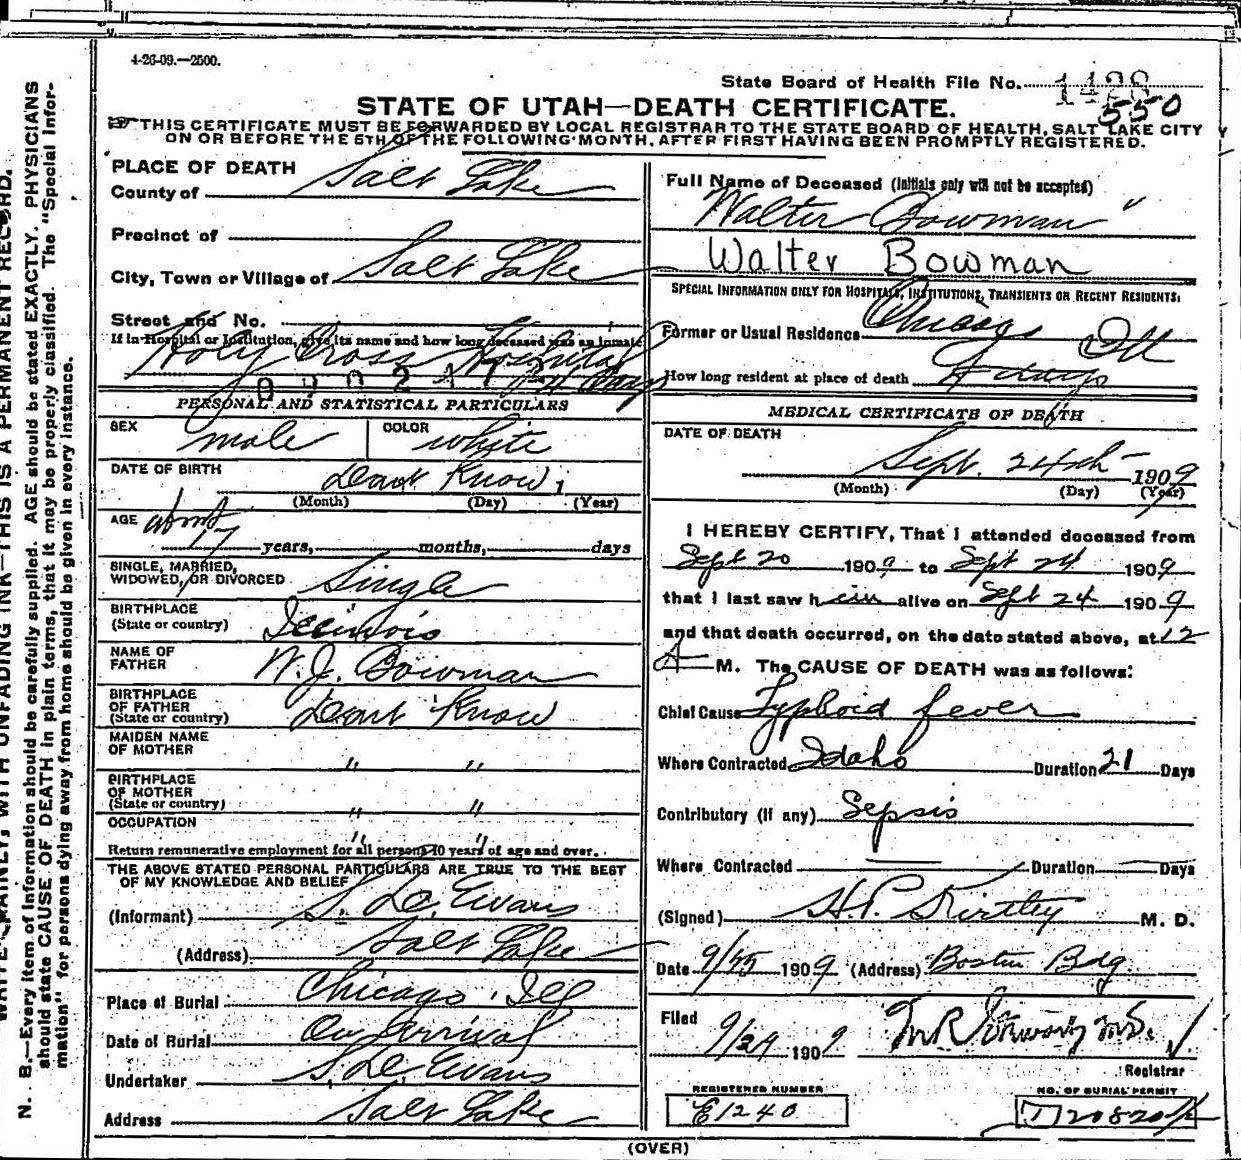 4-26-09.—2500.
State Board of Health File No. 1428
550
STATE OF UTAH—DEATH CERTIFICATE.
THIS CERTIFICATE MUST BE FORWARDED BY LOCAL REGISTRAR TO THE STATE BOARD OF HEALTH, SALT LAKE CITY
ON OR BEFORE THE 5TH OF THE FOLLOWING MONTH, AFTER FIRST HAVING BEEN PROMPTLY REGISTERED.
PLACE OF DEATH
County of Salt Lake
Precinct of
City, Town or Village of Salt Lake
Street and No.
If in Hospital or Institution, give its name and how long deceased was an inmate
Holy Cross Hospital
PERSONAL AND STATISTICAL PARTICULARS
SEX male COLOR white
DATE OF BIRTH Dont Know 1
(Month) (Day) (Year)
AGE about
17 years, months, days
SINGLE, MARRIED,
WIDOWED, OR DIVORCED Single
BIRTHPLACE
(State or country) Illinois
NAME OF
FATHER W. J. Bowman
BIRTHPLACE
OF FATHER
(State or country) Dont Know
MAIDEN NAME
OF MOTHER " "
BIRTHPLACE
OF MOTHER
(State or country) " "
OCCUPATION " "
Return remunerative employment for all persons 10 years of age and over.
THE ABOVE STATED PERSONAL PARTICULARS ARE TRUE TO THE BEST
OF MY KNOWLEDGE AND BELIEF
(Informant) S. D. Evans
(Address) Salt Lake
Place of Burial Chicago, Ill
Date of Burial On Arrival
Undertaker S. D. Evans
Address Salt Lake
Full Name of Deceased (Initials only will not be accepted)
Walter Bowman
Walter Bowman
SPECIAL INFORMATION ONLY FOR HOSPITALS, INSTITUTIONS, TRANSIENTS OR RECENT RESIDENTS:
Former or Usual Residence Chicago Ill
How long resident at place of death 4 days
MEDICAL CERTIFICATE OF DEATH
DATE OF DEATH
Sept. 24th 1909
(Month) (Day) (Year)
I HEREBY CERTIFY, That I attended deceased from
Sept 20 1909 to Sept 24 1909
that I last saw him alive on Sept 24 1909
and that death occurred, on the date stated above, at 12
A M. The CAUSE OF DEATH was as follows:
Chief Cause Typhoid fever
Where Contracted Idaho Duration 21 Days
Contributory (if any) Sepsis
Where Contracted — Duration — Days
(Signed) H. P. Kirtley M. D.
Date 9/25 1909 (Address) Boston Bdg
Filed
9/29 1909
Registrar
REGISTERED NUMBER
E1240
NO. OF BURIAL PERMIT
(OVER)
N. B.—Every item of information should be carefully supplied. AGE should be stated EXACTLY. PHYSICIANS
should state CAUSE OF DEATH in plain terms, that it may be properly classified. The "Special Infor-
mation" for persons dying away from home should be given in every instance.